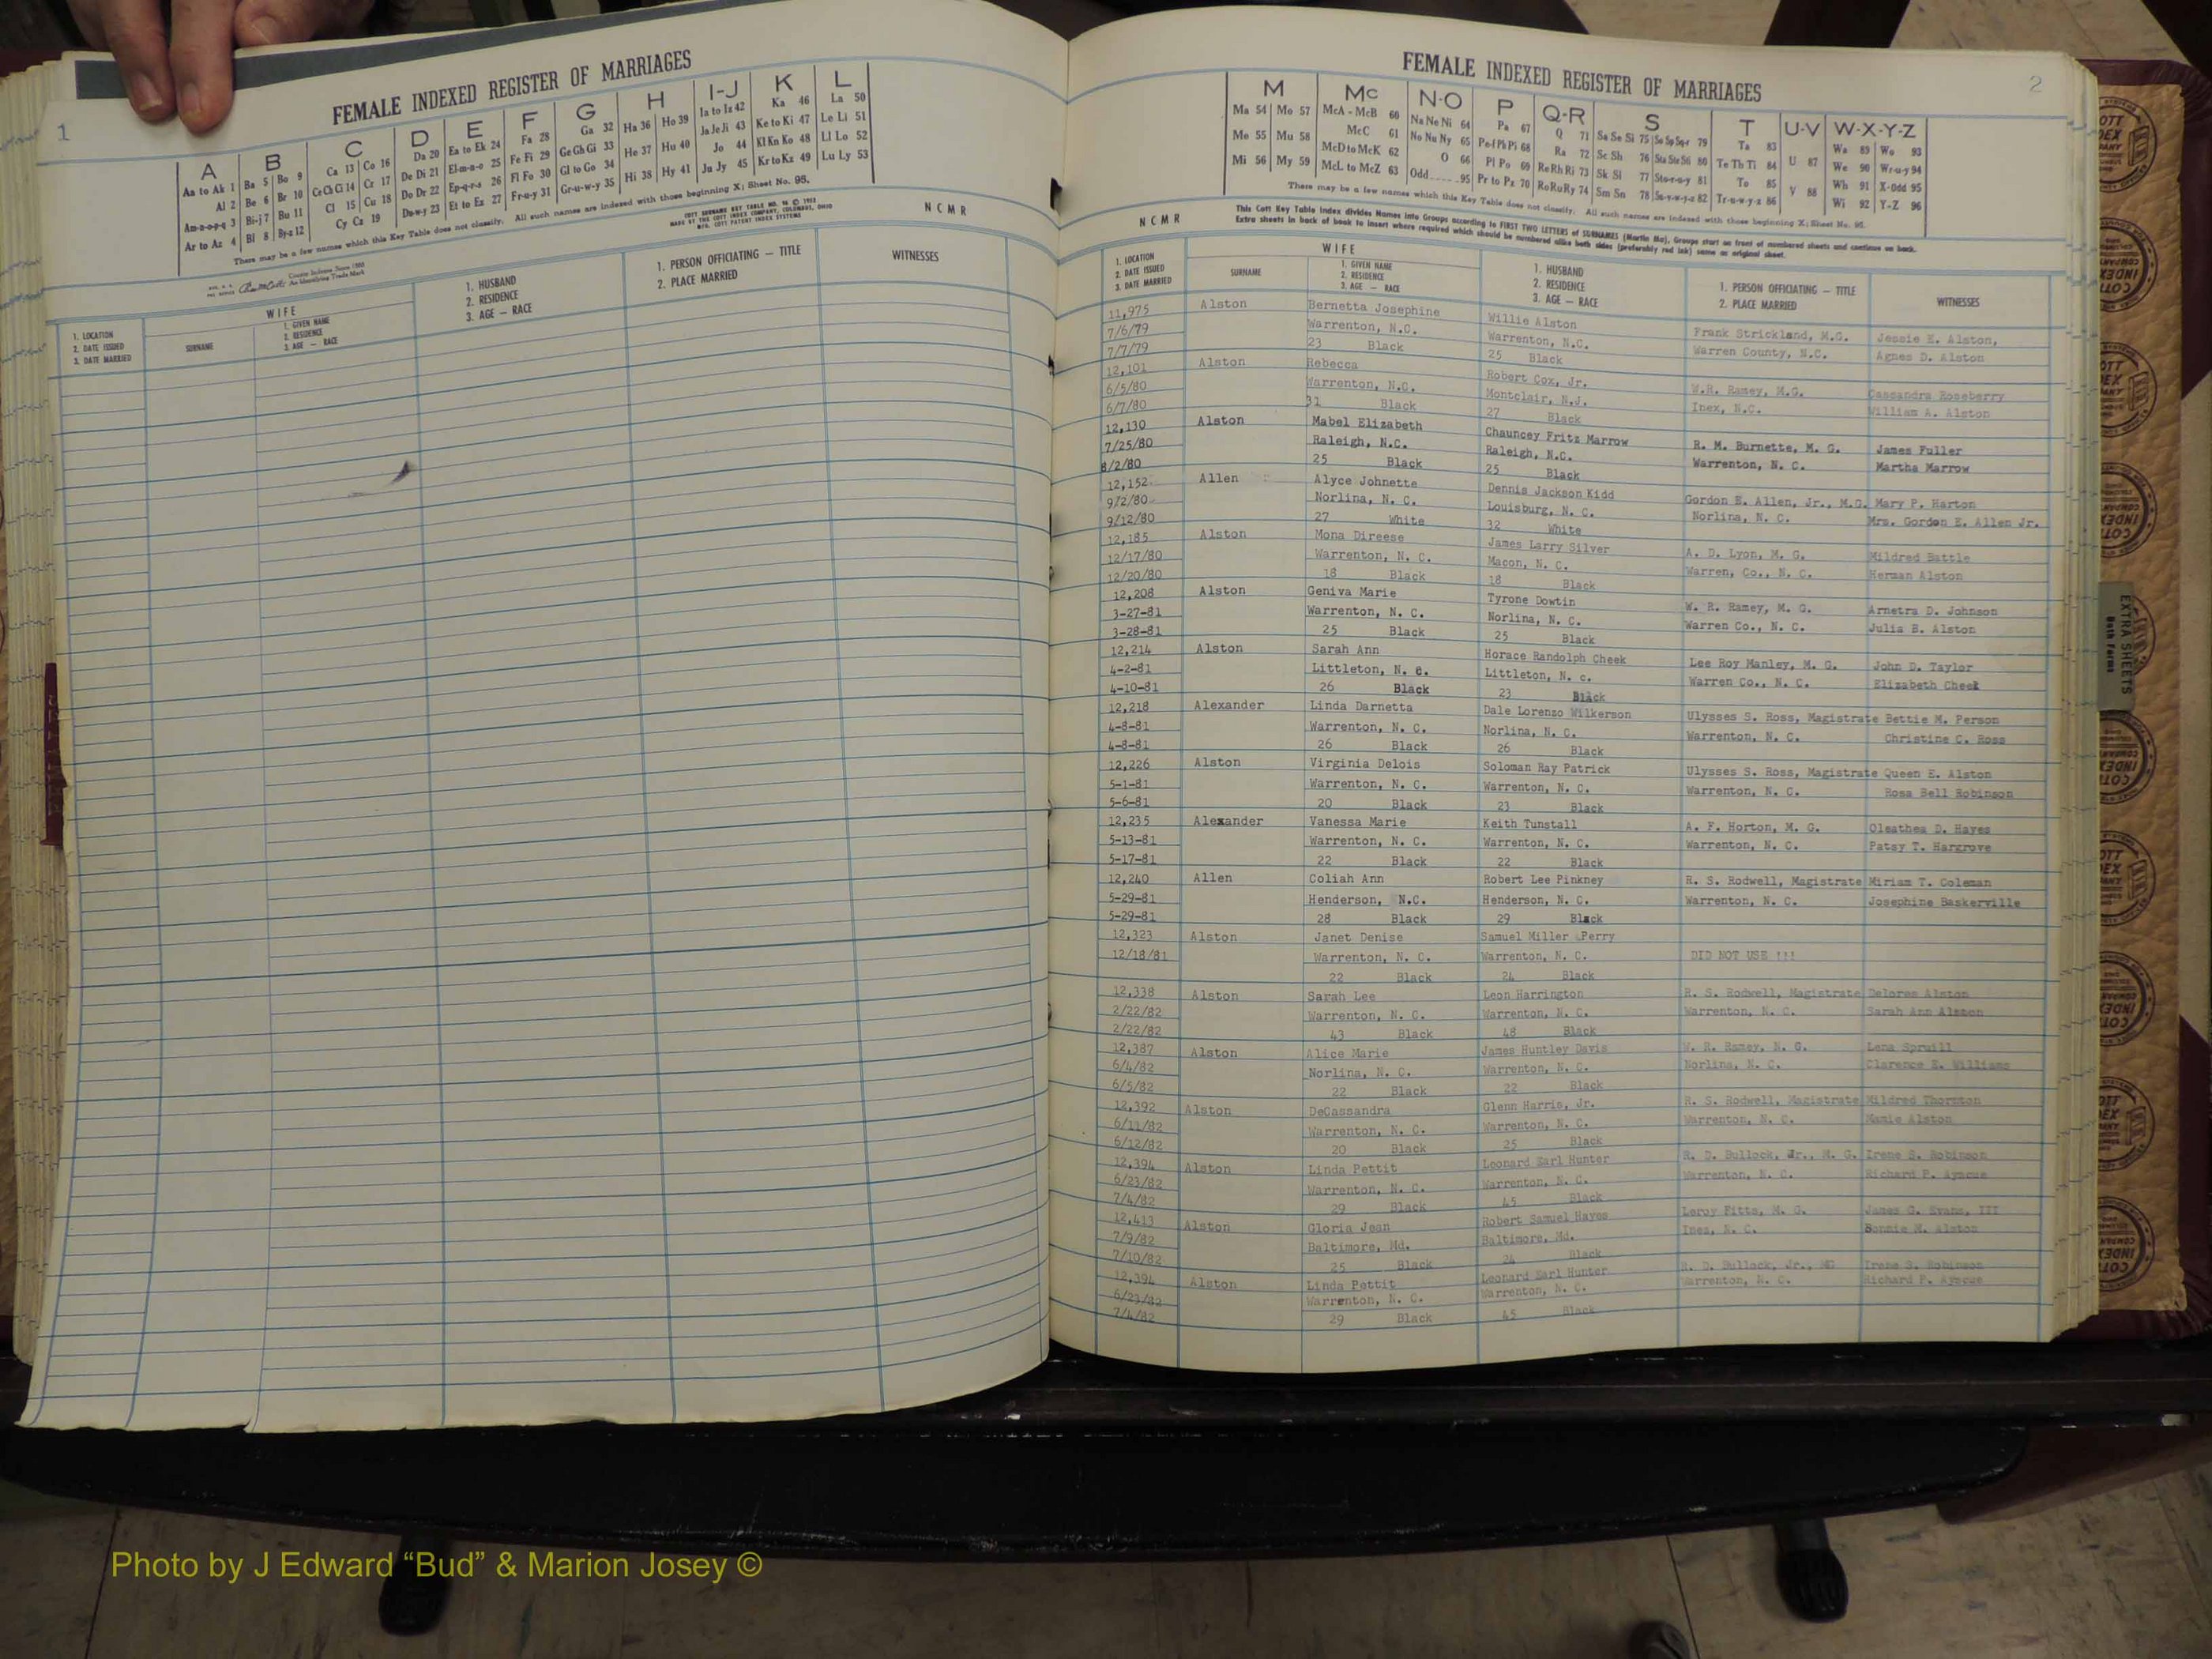 1
FEMALE INDEXED REGISTER OF MARRIAGES
A B C D E F G H I-J K L
Aa to Ak 1 Ba 5 Bo 9 Ca 13 Co 16 Da 20 Ea to Ek 24 Fa 28 Ga 32 Ha 36 Ho 39 Ia to Iz 42 Ka 46 La 50
Al 2 Be 6 Br 10 Ce Ch Ci 14 Cr 17 De Di 21 El-m-n-o 25 Fe Fi 29 Ge Gh Gi 33 He 37 Hu 40 Ja Je Ji 43 Ke to Ki 47 Le Li 51
Am-n-o-p-q 3 Bi-j 7 Bu 11 Cl 15 Cu 18 Do Dr 22 Ep-q-r-s 26 Fl Fo 30 Gl to Go 34 Hi 38 Hy 41 Jo 44 Kl Kn Ko 48 Ll Lo 52
Ar to Az 4 Bl 8 By-z 12 Cy Cz 19 Du-w-y 23 Et to Ez 27 Fr-u-y 31 Gr-u-w-y 35 Ju Jy 45 Kr to Kz 49 Lu Ly 53
There may be a few names which this Key Table does not classify. All such names are indexed with those beginning X; Sheet No. 95.
NCMR
WIFE
1. LOCATION
2. DATE ISSUED
3. DATE MARRIED
SURNAME
1. GIVEN NAME
2. RESIDENCE
3. AGE — RACE
1. HUSBAND
2. RESIDENCE
3. AGE — RACE
1. PERSON OFFICIATING — TITLE
2. PLACE MARRIED
WITNESSES
2
FEMALE INDEXED REGISTER OF MARRIAGES
M Mc N-O P Q-R S T U-V W-X-Y-Z
Ma 54 Mo 57 McA - McB 60 Na Ne Ni 64 Pa 67 Q 71 Sa Se Si 75 So Sp Sq-r 79 Ta 83 U 87 Wa 89 Wo 93
Me 55 Mu 58 McC 61 No Nu Ny 65 Pe-f Ph Pi 68 Ra 72 Sc Sh 76 Sta Ste Sti 80 Te Th Ti 84 V 88 We 90 Wr-u-y 94
Mi 56 My 59 McD to McK 62 O 66 Pl Po 69 Re Rh Ri 73 Sk Sl 77 Sto-r-u-y 81 To 85 Wh 91 X-Odd 95
McL to McZ 63 Odd 95 Pr to Pz 70 Ro Ru Ry 74 Sm Sn 78 Su-v-w-y-z 82 Tr-u-w-y-z 86 Wi 92 Y-Z 96
There may be a few names which this Key Table does not classify. All such names are indexed with those beginning X; Sheet No. 95.
This Cott Key Table Index divides Names into Groups according to FIRST TWO LETTERS of SURNAMES (Martin Ma), Groups start on front of numbered sheets and continue on back.
Extra sheets in back of book to insert where required which should be numbered alike both sides (preferably red ink) same as original sheet.
NCMR
WIFE
1. LOCATION
2. DATE ISSUED
3. DATE MARRIED
SURNAME
1. GIVEN NAME
2. RESIDENCE
3. AGE — RACE
1. HUSBAND
2. RESIDENCE
3. AGE — RACE
1. PERSON OFFICIATING — TITLE
2. PLACE MARRIED
WITNESSES
11,975 Alston Bernetta Josephine Willie Alston Frank Strickland, M.G. Jessie E. Alston,
7/6/79 Warrenton, N.C. Warrenton, N.C. Warren County, N.C. Agnes D. Alston
7/7/79 23 Black 25 Black
12,101 Alston Rebecca Robert Cox, Jr. W.R. Ramey, M.G. Cassandra Roseberry
6/5/80 Warrenton, N.C. Montclair, N.J. Inez, N.C. William A. Alston
6/7/80 31 Black 27 Black
12,130 Alston Mabel Elizabeth Chauncey Fritz Marrow R. M. Burnette, M. G. James Fuller
7/25/80 Raleigh, N.C. Raleigh, N.C. Warrenton, N. C. Martha Marrow
8/2/80 25 Black 25 Black
12,152 Allen Alyce Johnette Dennis Jackson Kidd Gordon E. Allen, Jr., M.G. Mary P. Harton
9/2/80 Norlina, N. C. Louisburg, N. C. Norlina, N. C. Mrs. Gordon E. Allen Jr.
9/12/80 27 White 32 White
12,185 Alston Mona Direese James Larry Silver A. D. Lyon, M. G. Mildred Battle
12/17/80 Warrenton, N. C. Macon, N. C. Warren, Co., N. C. Herman Alston
12/20/80 18 Black 18 Black
12,208 Alston Geniva Marie Tyrone Dowtin W. R. Ramey, M. G. Arnetra D. Johnson
3-27-81 Warrenton, N. C. Norlina, N. C. Warren Co., N. C. Julia B. Alston
3-28-81 25 Black 25 Black
12,214 Alston Sarah Ann Horace Randolph Cheek Lee Roy Manley, M. G. John D. Taylor
4-2-81 Littleton, N. C. Littleton, N. C. Warren Co., N. C. Elizabeth Cheek
4-10-81 26 Black 23 Black
12,218 Alexander Linda Darnetta Dale Lorenzo Wilkerson Ulysses S. Ross, Magistrate Bettie M. Person
4-8-81 Warrenton, N. C. Norlina, N. C. Warrenton, N. C. Christine C. Ross
4-8-81 26 Black 26 Black
12,226 Alston Virginia Delois Soloman Ray Patrick Ulysses S. Ross, Magistrate Queen E. Alston
5-1-81 Warrenton, N. C. Warrenton, N. C. Warrenton, N. C. Rosa Bell Robinson
5-6-81 20 Black 23 Black
12,235 Alexander Vanessa Marie Keith Tunstall A. F. Horton, M. G. Oleathea D. Hayes
5-13-81 Warrenton, N. C. Warrenton, N. C. Warrenton, N. C. Patsy T. Hargrove
5-17-81 22 Black 22 Black
12,240 Allen Coliah Ann Robert Lee Pinkney R. S. Rodwell, Magistrate Miriam T. Coleman
5-29-81 Henderson, N.C. Henderson, N. C. Warrenton, N. C. Josephine Baskerville
5-29-81 28 Black 29 Black
12,323 Alston Janet Denise Samuel Miller Perry
12/18/81 Warrenton, N. C. Warrenton, N. C. DID NOT USE !!!
22 Black 24 Black
12,338 Alston Sarah Lee Leon Harrington R. S. Rodwell, Magistrate Delores Alston
2/22/82 Warrenton, N. C. Warrenton, N. C. Warrenton, N. C. Sarah Ann Alston
2/22/82 43 Black 48 Black
12,387 Alston Alice Marie James Huntley Davis W. R. Ramey, M. G. Lena Spruill
6/4/82 Norlina, N. C. Warrenton, N. C. Norlina, N. C. Clarence E. Williams
6/5/82 22 Black 22 Black
12,392 Alston DeCassandra Glenn Harris, Jr. R. S. Rodwell, Magistrate Mildred Thornton
6/11/82 Warrenton, N. C. Warrenton, N. C. Warrenton, N. C. Mamie Alston
6/12/82 20 Black 25 Black
12,394 Alston Linda Pettit Leonard Earl Hunter R. D. Bullock, Jr., M. G. Irene S. Robinson
6/23/82 Warrenton, N. C. Warrenton, N. C. Warrenton, N. C. Richard P. Ayscue
7/4/82 29 Black 45 Black
12,413 Alston Gloria Jean Robert Samuel Hayes Leroy Fitts, M. G. James G. Evans, III
7/9/82 Baltimore, Md. Baltimore, Md. Inez, N. C. Bonnie M. Alston
7/10/82 25 Black 24 Black
12,394 Alston Linda Pettit Leonard Earl Hunter R. D. Bullock, Jr., MG Irene S. Robinson
6/23/82 Warrenton, N. C. Warrenton, N. C. Warrenton, N. C. Richard P. Ayscue
7/4/82 29 Black 45 Black
EXTRA SHEETS
Both Forms
Photo by J Edward “Bud” & Marion Josey ©